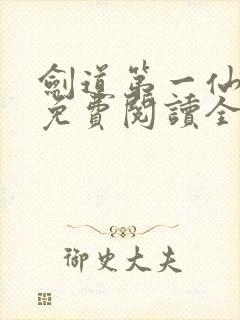 劍道第一仙
免費閱讀全
御史大夫